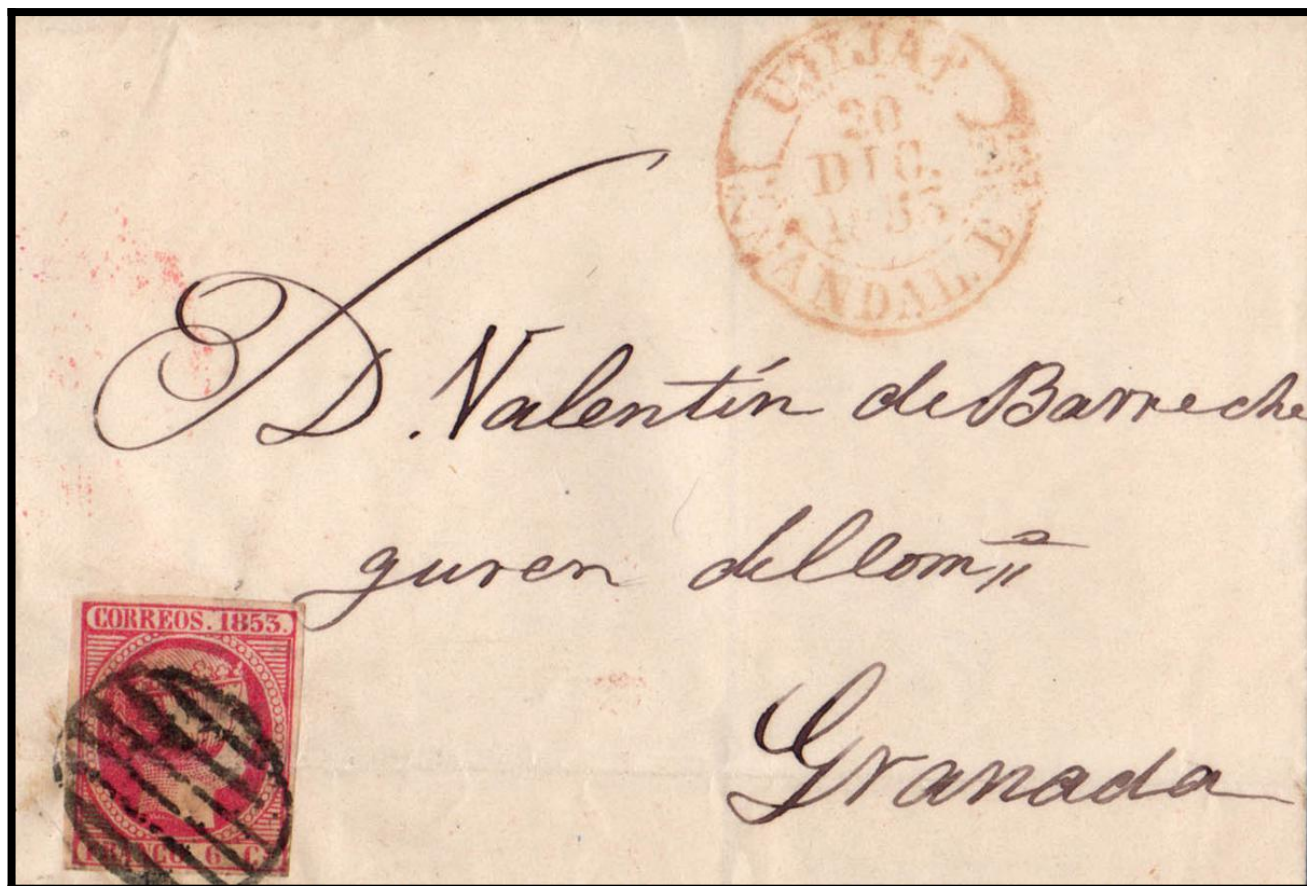 UJIJAR
20
DIC.
1853
ANDAL. B.
D. Valentín de Barreche
guren del Com.º
Granada
CORREOS. 1853.
FRANCO. 6 Cs.